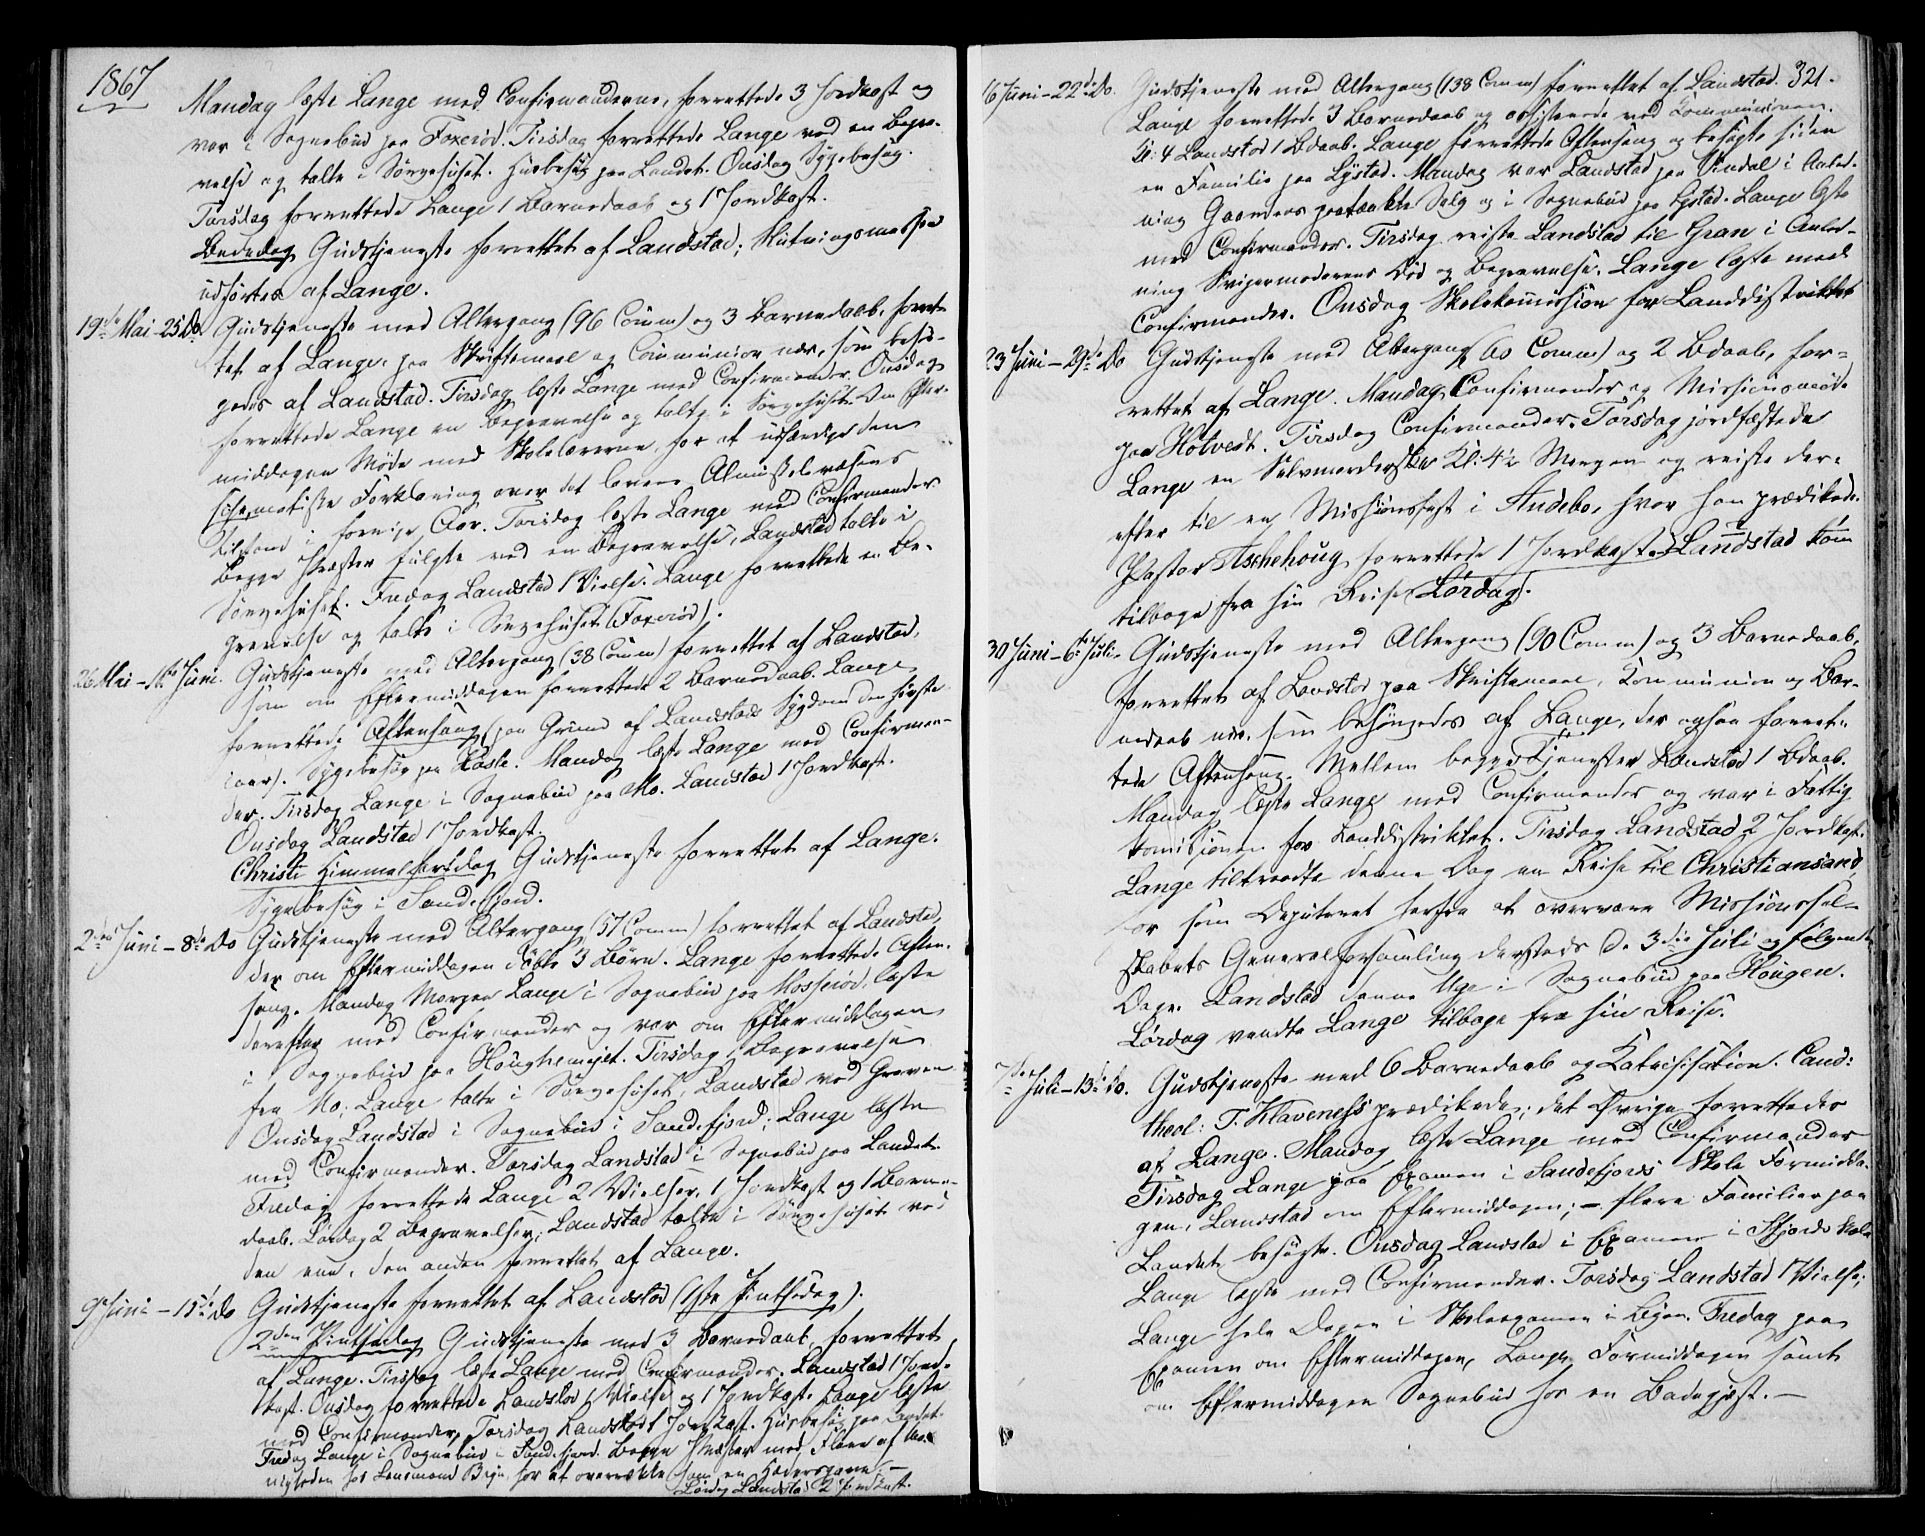 1867
Mandag læste Lange med Confirmanderne, forrettede 3 Jordkast og
var i Sognebud paa Foxerød. Tirsdag forrettede Lange ved en Begra-
velse og talte i Sørgehuset. Husbesøg paa Landet. Onsdag Sygebesøg.
Torsdag forrettede Lange 1 Barnedaab og 1 Jordkast.
Bededag Gudstjeneste forrettet af Landstad; Slutningsmessen
udførtes af Lange.
19de Mai - 25 Do Gudstjeneste med Altergang (96 Comm) og 3 Barnedaab, forret-
tet af Lange, paa Skriftemaal og Communion nær, som besør-
gedes af Landstad. Tirsdag læste Lange med Confirmander. Onsdag
forrettede Lange en Begravelse og talte i Sørgehuset. Om Efter-
middagen Møde med Skolelærerne, for at udfærdige den
schematiske Forklaring over det lavere Almueskolevæsens
Tilstand i forrige Aar. Torsdag læste Lange med Confirmander
Begge Præster fulgte ved en Begravelse, Landstad talte i
Sørgehuset. Fredag Landstad 1 Vielse. Lange forrettede en Be-
gravelse og talte i Sørgehuset (Foxerød).
26 Mai - 1ste Juni. Gudstjeneste med Altergang (38 Comm) forrettet af Landstad,
som om Eftermiddagen forrettede 2 Barnedaab. Lange
forrettede Aftensang (paa Grund af Landstads Sygdom den første
iaar). Sygebesøg paa Hasle. Mandag læste Lange med Confirman-
der. Tirsdag Lange i Sognebud paa Mo. Landstad 1 Jordkast.
Onsdag Landstad 1 Jordkast.
Christi Himmelfartsdag Gudstjeneste forrettet af Lange.
Sygebesøg i Sandefjord.
2den Juni - 8de Do Gudstjeneste med Altergang (57 Comm) forrettet af Landstad,
der om Eftermiddagen døbte 3 Børn. Lange forrettede Aften-
sang. Mandag Morgen Lange i Sognebud paa Mosserød, læste
derefter med Confirmander og var om Eftermiddagen
i Sognebud paa Haughemejet. Tirsdag Begravelse
fra Mo; Lange talte i Sørgehuset, Landstad ved Graven
Onsdag Landstad i Sognebud i Sandefjord; Lange læste
med Confirmander. Torsdag Landstad i Sognebud paa Landet.
Fredag forrettede Lange 2 Vielser, 1 Jordkast og 1 Barne-
daab. Lørdag 2 Begravelser; Landstad talte i Sørgehuset ved
den ene, den anden forrettet af Lange.
9de Juni - 15de Do Gudstjeneste forrettet af Landstad (1ste Pintsedag).
2den Pintsedag Gudstjeneste med 3 Barnedaab, forrettet
af Lange. Tirsdag læste Lange med Confirmander. Landstad 1 Jord-
kast. Onsdag forrettede Landstad 1 Vielse og 1 Jordkast. Lange læste
med Confirmander. Torsdag Landstad 1 Jordkast. Husbesøg paa Landet.
Fredag Lange i Sognebud i Sandefjord. Begge Præster med Flere af Me-
nigheden hos Lensmand Bryn for at overrække ham en Hædersgave. -
Lørdag Landstad 2 Jordkast.
321.
16 Juni - 22de Do. Gudstjeneste med Altergang (138 Comm) forrettet af Landstad.
Lange forrettede 3 Barnedaab og assisterede ved Kommunionen.
Kl: 4 Landstad 1 Bdaab. Lange forrettede Aftensang og besøgte siden
en Familie paa Lystad. Mandag var Landstad paa Vindal i Anled-
ning Gaardens paatænkte Salg og i Sognebud paa Lystad. Lange læste
med Confirmander. Tirsdag reiste Landstad til Gran i Anled-
ning Svigermoderens Død og Begravelse. Lange læste med
Confirmander. Onsdag Skolekommission for Landdistriktet
23 Juni - 29de Do Gudstjeneste med Altergang (60 Comm) og 2 Bdaab, for-
rettet af Lange. Mandag Confirmander og Missionsmøde
paa Hotvedt. Tirsdag Confirmander. Torsdag jordfæstede
Lange en Selvmorderske Kl: 4½ Morgen og reiste der-
efter til en Missionsfest i Andebo, hvor han prædikede.
Pastor Aschehoug forrettede 1 Jordkast. Landstad kom
tilbage fra sin Reise (Lørdag).
30 Juni - 6te Juli. Gudstjeneste med Altergang (90 Comm) og 3 Barnedaab,
forrettet af Landstad paa Skriftemaal, Kommunion og Bar-
nedaab nær, som besørgedes af Lange, der ogsaa forret-
tede Aftensang. Mellem begge Tjenester Landstad 1 Bdaab.
Mandag læste Lange med Confirmander og var i Fattig-
komissionen for Landdistriktet. Tirsdag Landstad 2 Jordkast.
Lange tiltraadte denne Dag en Reise til Christiansand,
for som Deputeret herfra at overvære Missionssel-
skabets Generalforsamling dersteds d. 3die Juli og følgende
Dage. Landstad denne Uge i Sognebud paa Haugen.
Lørdag vendte Lange tilbage fra sin Reise.
7de Juli - 13de Do. Gudstjeneste med 6 Barnedaab og Katechisation. Cand:
theol: T. Klaveness prædikede; det Øvrige forrettedes
af Lange. Mandag læste Lange med Confirmander
Tirsdag Lange paa Examen i Sandefjords Skole Formidda-
gen, Landstad om Eftermiddagen; - flere Familier paa
Landet besøgte. Onsdag Landstad i Examen i Fjords Skole
Lange læste med Confirmander. Torsdag Landstad 1 Vielse;
Lange hele Dagen i Skoleexamen i Byen. Fredag paa
Examen om Eftermiddagen, Lange Formiddagen samt
om Eftermiddagen Sognebud hos en Badegjest. -